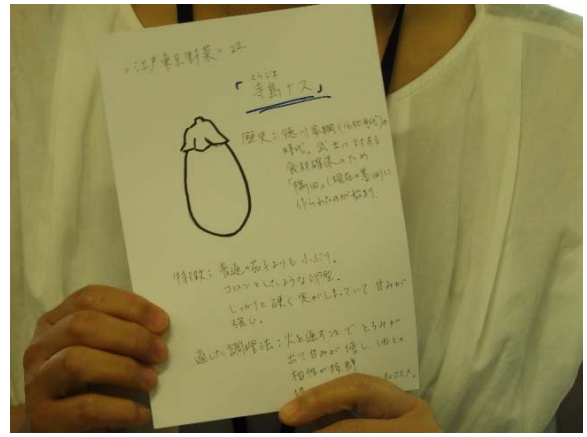 =江戸東京野菜= 22.
てらじま
「寺島ナス」
歴史：徳川家綱(1650年代)の
時代、武士に対する
食料確保のため
「隅田」(現在の墨田)に
作られたのが始まり。
特徴：普通の茄子よりも小ぶり。
コロンとしたような卵型。
しっかりと硬く実がしまっていて甘みが
強い。
適した調理法：火を通すことでとろみが
出て甘みが増し、油との
相性が抜群